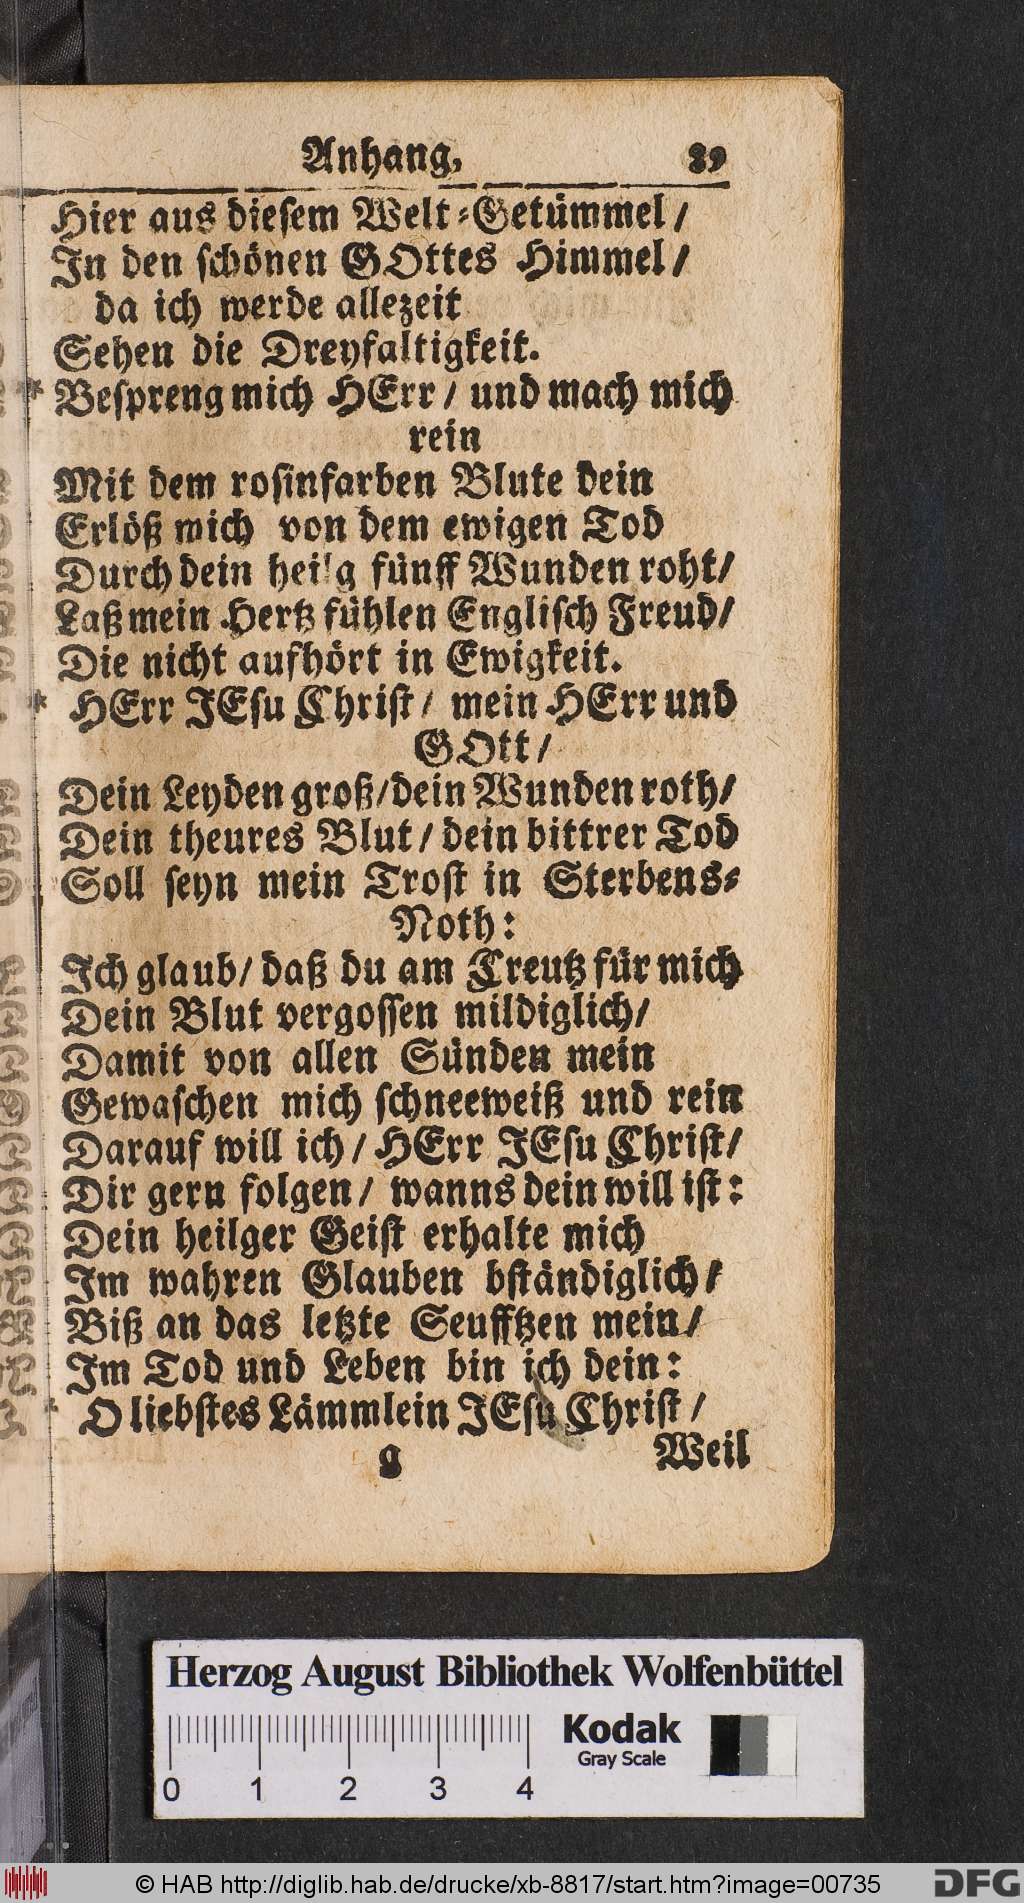 Anhang,
Hier aus diesem Welt-Getümmel /
In den schönen GOttes Himmel /
da ich werde allezeit
Sehen die Dreyfaltigkeit.
* Bespreng mich HErr / und mach mich
rein
Mit dem rosinfarben Blute dein
Erlöß mich von dem ewigen Tod
Durch dein heilg fünff Wunden roht /
Laß mein Hertz fühlen Englisch Freud /
Die nicht aufhört in Ewigkeit.
* HErr JEsu Christ / mein HErr und
GOtt /
Dein Leyden groß / dein Wunden roth /
Dein theures Blut / dein bittrer Tod
Soll seyn mein Trost in Sterbens-
Noth:
Ich glaub / daß du am Creutz für mich
Dein Blut vergossen mildiglich /
Damit von allen Sünden mein
Gewaschen mich schneeweiß und rein
Darauf will ich / HErr JEsu Christ /
Dir gern folgen / wanns dein will ist:
Dein heilger Geist erhalte mich
Im wahren Glauben bständiglich /
Biß an das letzte Seufftzen mein /
Im Tod und Leben bin ich dein:
* O liebstes Lämmlein JEsu Christ /
g Weil
Herzog August Bibliothek Wolfenbüttel
Kodak
Gray Scale
0 1 2 3 4
© HAB http://diglib.hab.de/drucke/xb-8817/start.htm?image=00735
DFG